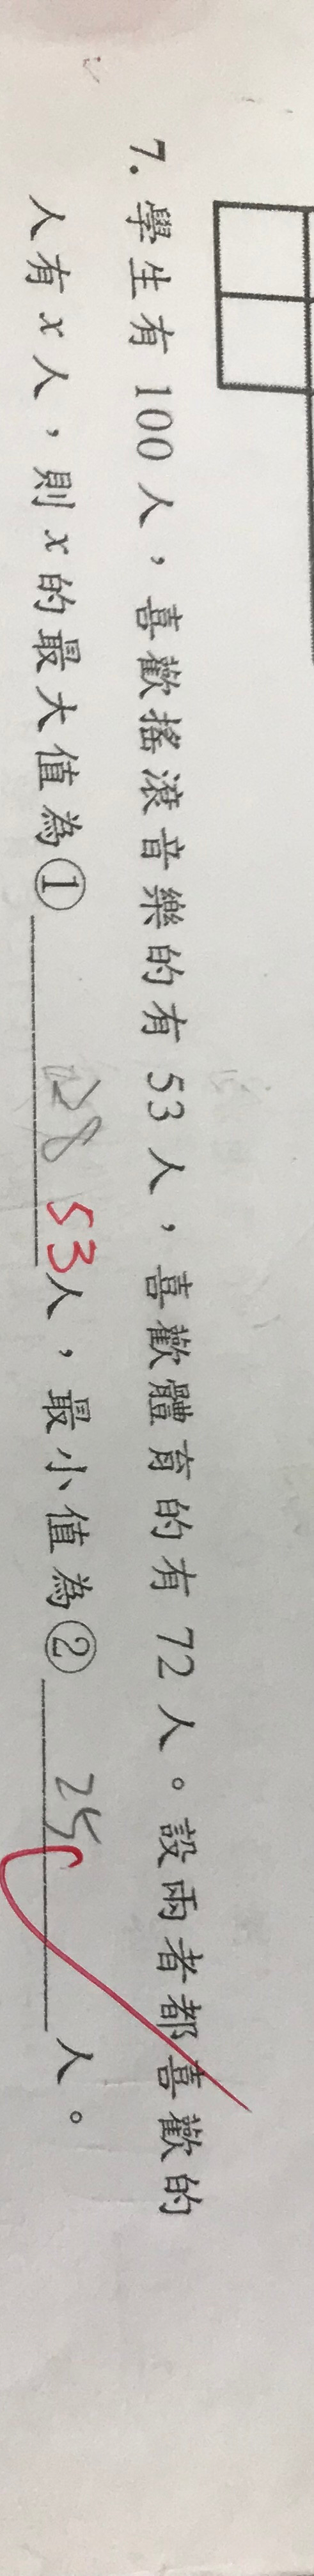 7. 學生有 100 人，喜歡搖滾音樂的有 53 人，喜歡體育的有 72 人。設兩者都喜歡的
人有 x 人，則 x 的最大值為① 28 53 人，最小值為② 25 人。